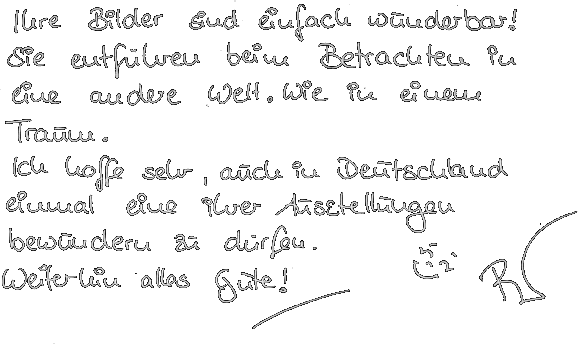 Ihre Bilder sind einfach wunderbar!
Sie entführen beim Betrachten in
eine andere Welt. Wie in einem
Traum.
Ich hoffe sehr, auch in Deutschland
einmal eine ihrer Ausstellungen
bewundern zu dürfen.
Weiterhin alles Gute!